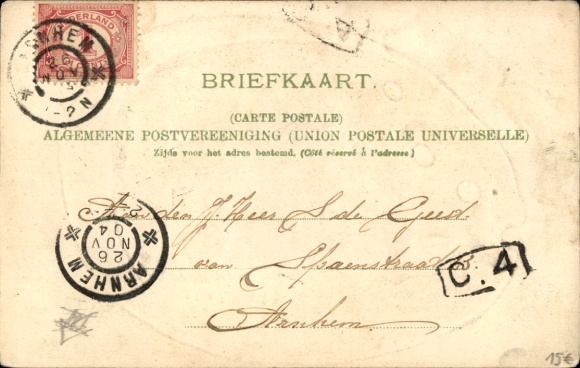 NEDERLAND
ARNHEM
26
NOV
C. 4
BRIEFKAART.
(CARTE POSTALE)
ALGEMEENE POSTVEREENIGING (UNION POSTALE UNIVERSELLE)
Zijde voor het adres bestemd. (Côté réservé à l'adresse)
Aan den J. Heer S de Geest
van Spaenstraat
Arnhem.
ARNHEM
26
NOV
04
C. 4
15€